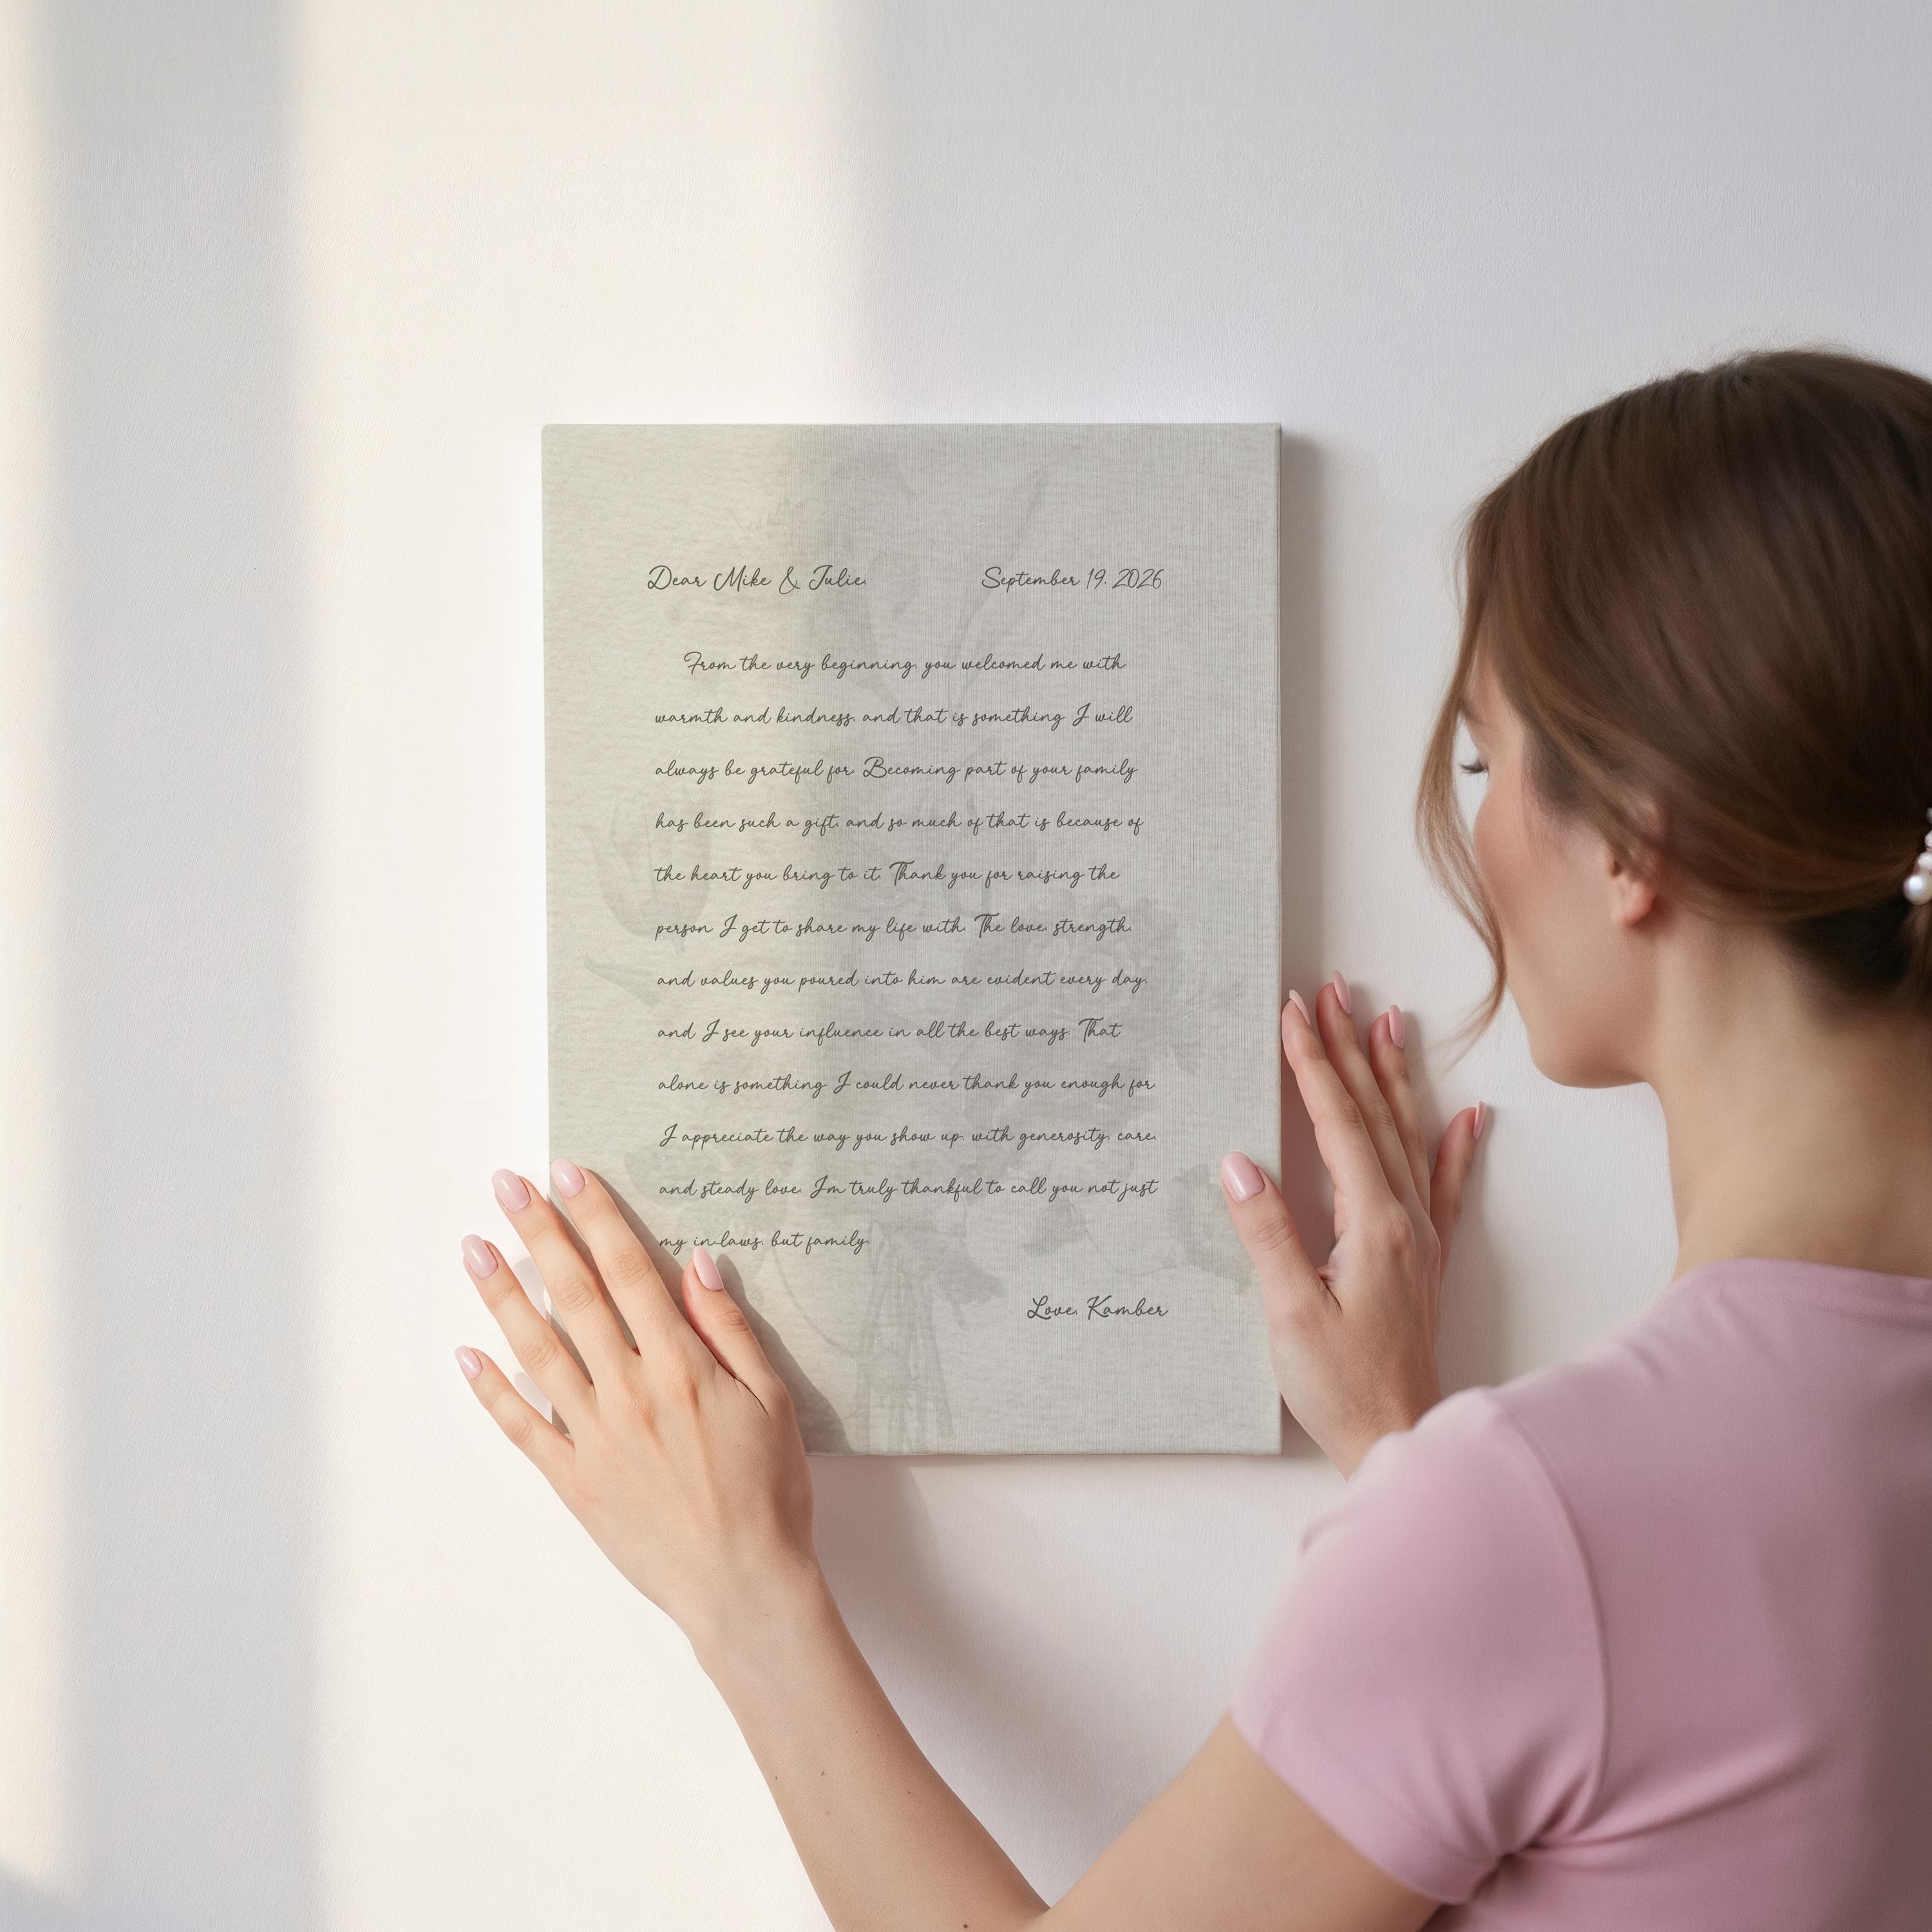 Dear Mike & Julie, September 19, 2026
From the very beginning, you welcomed me with
warmth and kindness, and that is something I will
always be grateful for. Becoming part of your family
has been such a gift, and so much of that is because of
the heart you bring to it. Thank you for raising the
person I get to share my life with. The love, strength,
and values you poured into him are evident every day,
and I see your influence in all the best ways. That
alone is something I could never thank you enough for.
I appreciate the way you show up, with generosity, care,
and steady love. I'm truly thankful to call you not just
my in-laws, but family.
Love, Kamber